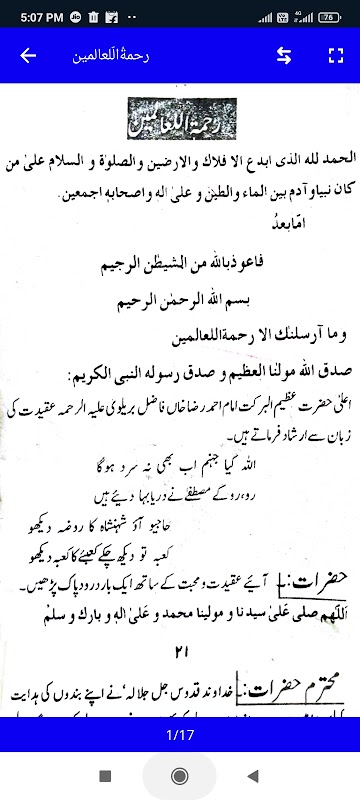 5:07 PM
4G
76
رحمۃُ الّلعالمین
رحمۃ اللعالمین
الحمد لله الذى ابدع الا فلاك والارضين والصلوٰة و السلام علىٰ من
كان نبياو آدم بين الماء والطين و علىٰ اله واصحابهٖ اجمعين.
امّا بعدُ
فاعوذبالله من الشيطٰن الرجيم
بسم الله الرحمٰن الرحيم
وما آرسلنٰك الا رحمةاللعالمين
صدق الله مولٰنا العظيم و صدق رسوله النبى الكريم:
اعلیٰ حضرت عظیم البرکت امام احمد رضا خاں فاضل بریلوی علیہ الرحمہ عقیدت کی
زبان سے ارشاد فرماتے ہیں۔
اللہ کیا جہنم اب بھی نہ سرد ہوگا
رو، رو کے مصطفےٰ نے دریا بہا دیئے ہیں
حاجیو آؤ شہنشاہ کا روضہ دیکھو
کعبہ تو دیکھ چکے کعبے کا کعبہ دیکھو
حضرات:۔ آیئے عقیدت و محبت کے ساتھ ایک بار درود پاک پڑھیں۔
اللّٰهم صلى علىٰ سيدنا و مولينا محمد و علىٰ اله و بارك و سلم
٢١
محترم حضرات:۔ خداوند قدوس جل جلالہٗ نے اپنے بندوں کی ہدایت
1/17